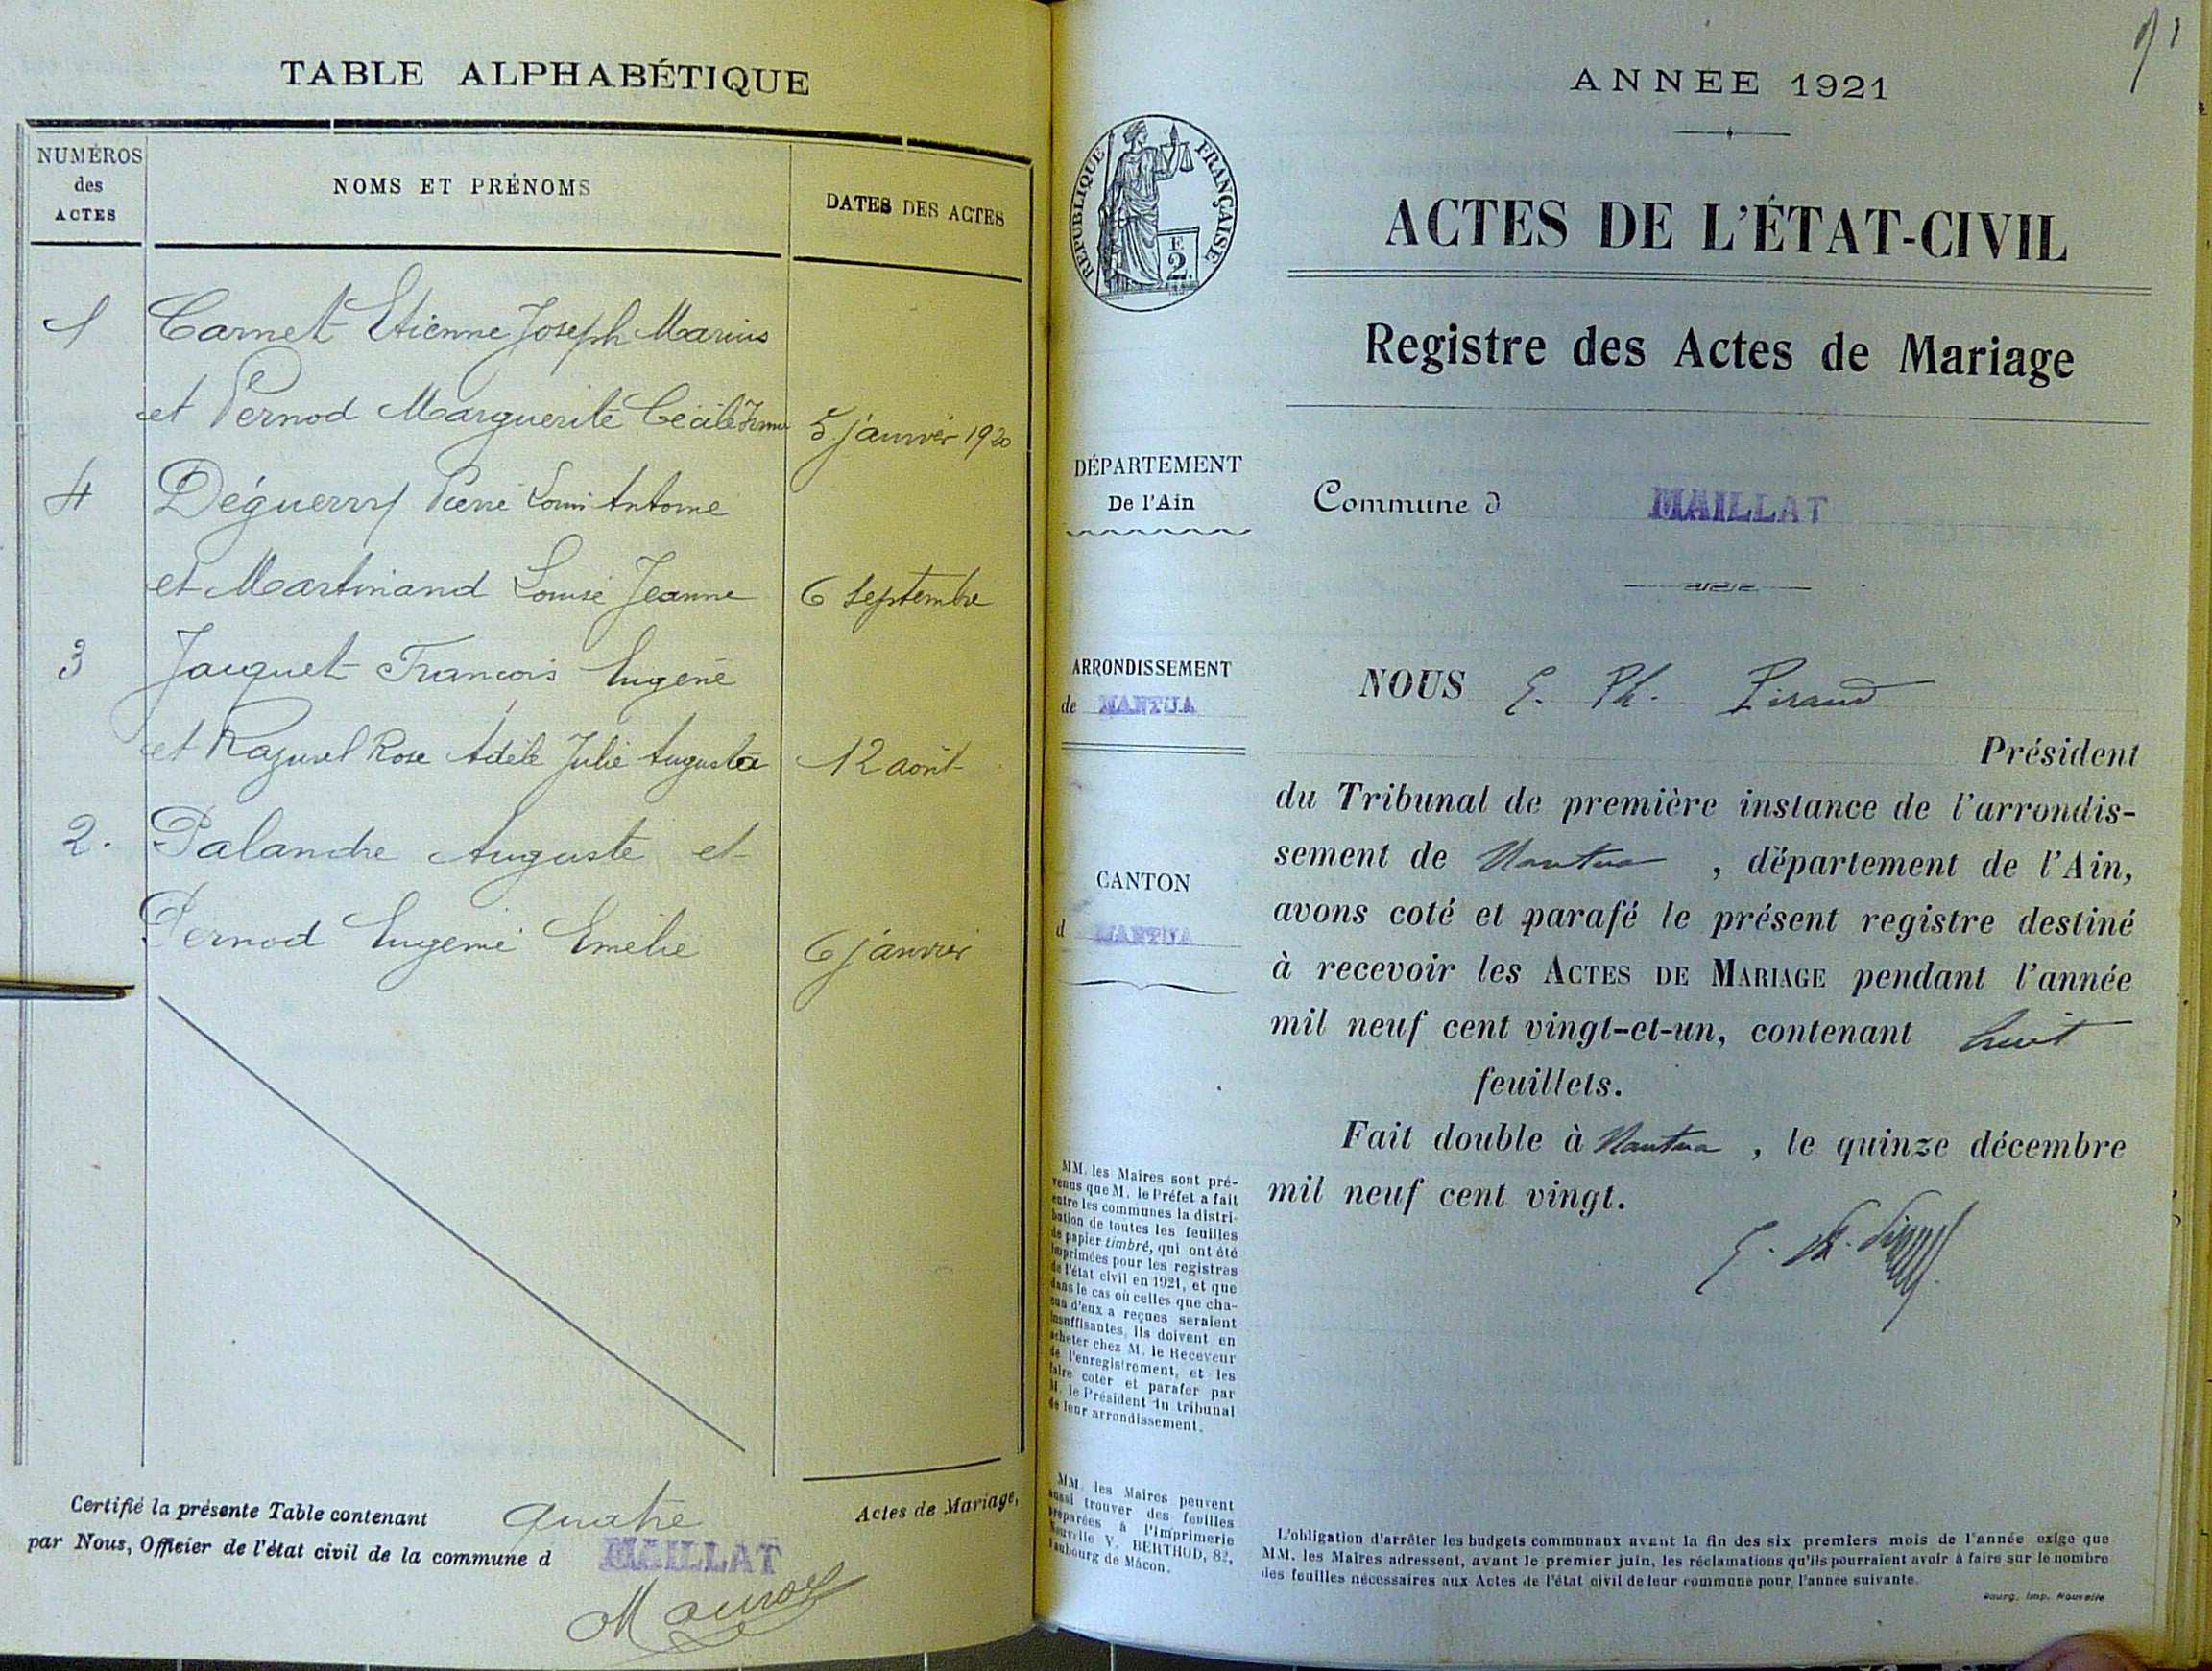 TABLE ALPHABÉTIQUE
NUMÉROS
des
ACTES
NOMS ET PRÉNOMS
DATES DES ACTES
1 Carnet Etienne Joseph Marius
et Pernod Marguerite Cécile Irma 5 janvier 1920
4 Déguerry Pierre Louis Antoine
et Martinand Louise Jeanne 6 septembre
3 Jacquet François Eugène
et Razurel Rose Adèle Julie Augusta 12 août
2. Palandre Auguste et
Pernod Eugenie Emelie 6 janvier
Certifié la présente Table contenant quatre Actes de Mariage,
par Nous, Officier de l'état civil de la commune d MAILLAT
ANNEE 1921
RÉPUBLIQUE FRANÇAISE
F.
2.
ACTES DE L'ÉTAT-CIVIL
Registre des Actes de Mariage
DÉPARTEMENT
De l'Ain
Commune d MAILLAT
ARRONDISSEMENT
de NANTUA
CANTON
d NANTUA
NOUS E. Ph. Piraud
Président
du Tribunal de première instance de l'arrondis-
sement de Nantua , département de l'Ain,
avons coté et parafé le présent registre destiné
à recevoir les ACTES DE MARIAGE pendant l'année
mil neuf cent vingt-et-un, contenant huit
feuillets.
Fait double à Nantua , le quinze décembre
mil neuf cent vingt.
MM. les Maires sont pré-
venus que M. le Préfet a fait
entre les communes la distri-
bution de toutes les feuilles
de papier timbré, qui ont été
imprimées pour les registres
de l'état civil en 1921, et que
dans le cas où celles que cha-
cun d'eux a reçues seraient
insuffisantes, ils doivent en
acheter chez M. le Receveur
de l'enregistrement, et les
faire coter et parafer par
M. le Président du tribunal
de leur arrondissement.
MM. les Maires peuvent
aussi trouver des feuilles
préparées à l'imprimerie
Nouvelle V. BERTHOD, 82,
faubourg de Mâcon.
L'obligation d'arrêter les budgets communaux avant la fin des six premiers mois de l'année exige que
MM. les Maires adressent, avant le premier juin, les réclamations qu'ils pourraient avoir à faire sur le nombre
des feuilles nécessaires aux Actes de l'état civil de leur commune pour l'année suivante.
Bourg, Imp. Nouvelle